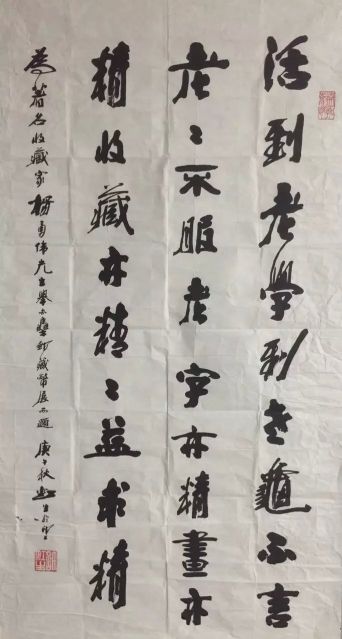 活到老學到老龜不言
老〻不服老字亦精畫亦
精收藏亦精〻益求精
為著名收藏家楊勇偉先生舉印藏幣展而題庚子秋